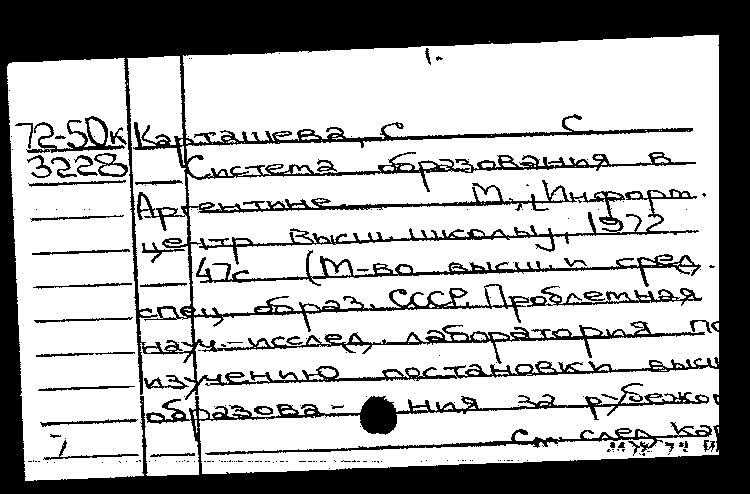 1.
72-50к Карташева, С С.
3228 Система образования в
Аргентине. М., Информ.
центр высш. школы, 1972.
47с (М-во высш. и сред.
спец. образ. СССР. Проблемная
науч.-исслед. лаборатория по
изучению постановки высш
образова- ния за рубежо
см след кар